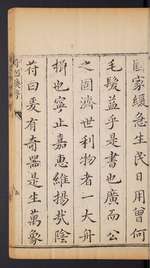 國家緩急生民日用曾何
毛髮益乎是書也廣而公
之固濟世利物者一大舟
楫也寧止嘉惠維揚哉陰
符曰爰有奇器是生萬象